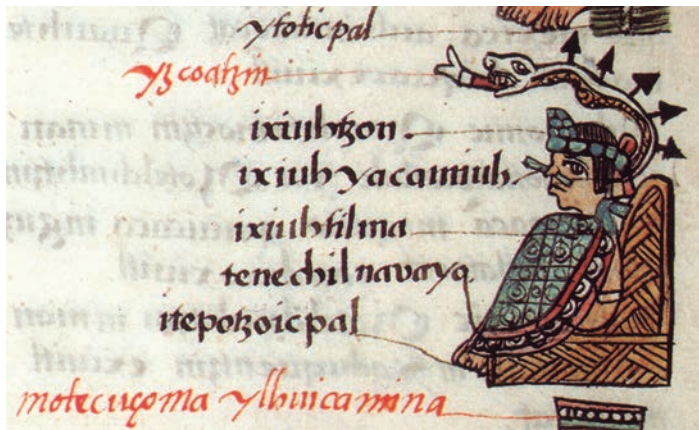 ytolicpal
yzcoatzin
ixiuhtzon.
ixiuh yacamiuh
ixiuhtilma
tenechilnavayo
itepotzoicpal
motecuçoma ylhuicamina